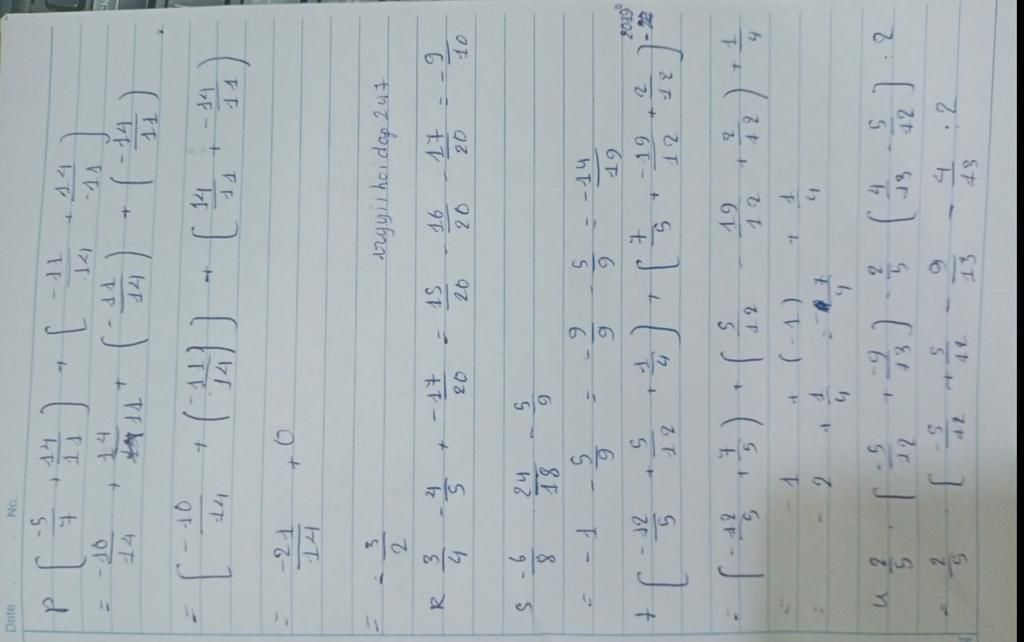 Date No.
P [ -5/7 + 14/11 ] + [ -11/14 + 14/-11 ]
= -10/14 + 14/11 + ( -11/14 ) + ( -14/11 )
= [ -10/14 + ( -11/14 ) ] + [ 14/11 + -14/11 ]
= -21/14 + 0
= -3/2
nguyiihoidap247
R 3/4 - 4/5 + -17/20 = 15/20 - 16/20 - 17/20 = -9/10
S -6/8 24/18 - 5/9
= -1 - 5/9 = -9/9 - 5/9 = -14/19
T [ -12/5 + 5/12 + 1/4 ] + [ 7/5 + -19/12 + 2/12 ] 2019⁰
[ -12/5 + 7/5 ) + ( 5/12 - 19/12 + 2/12 ) + 1/4
= -1 + (-1) + 1/4
= -2 + 1/4 = -7/4
U 2/5 . [ -5/12 + -9/13 ) - 2/5 [ 4/13 - 5/12 ] . 2
= 2/5 [ -5/12 + 5/12 - 9/13 - 4/13 . 2